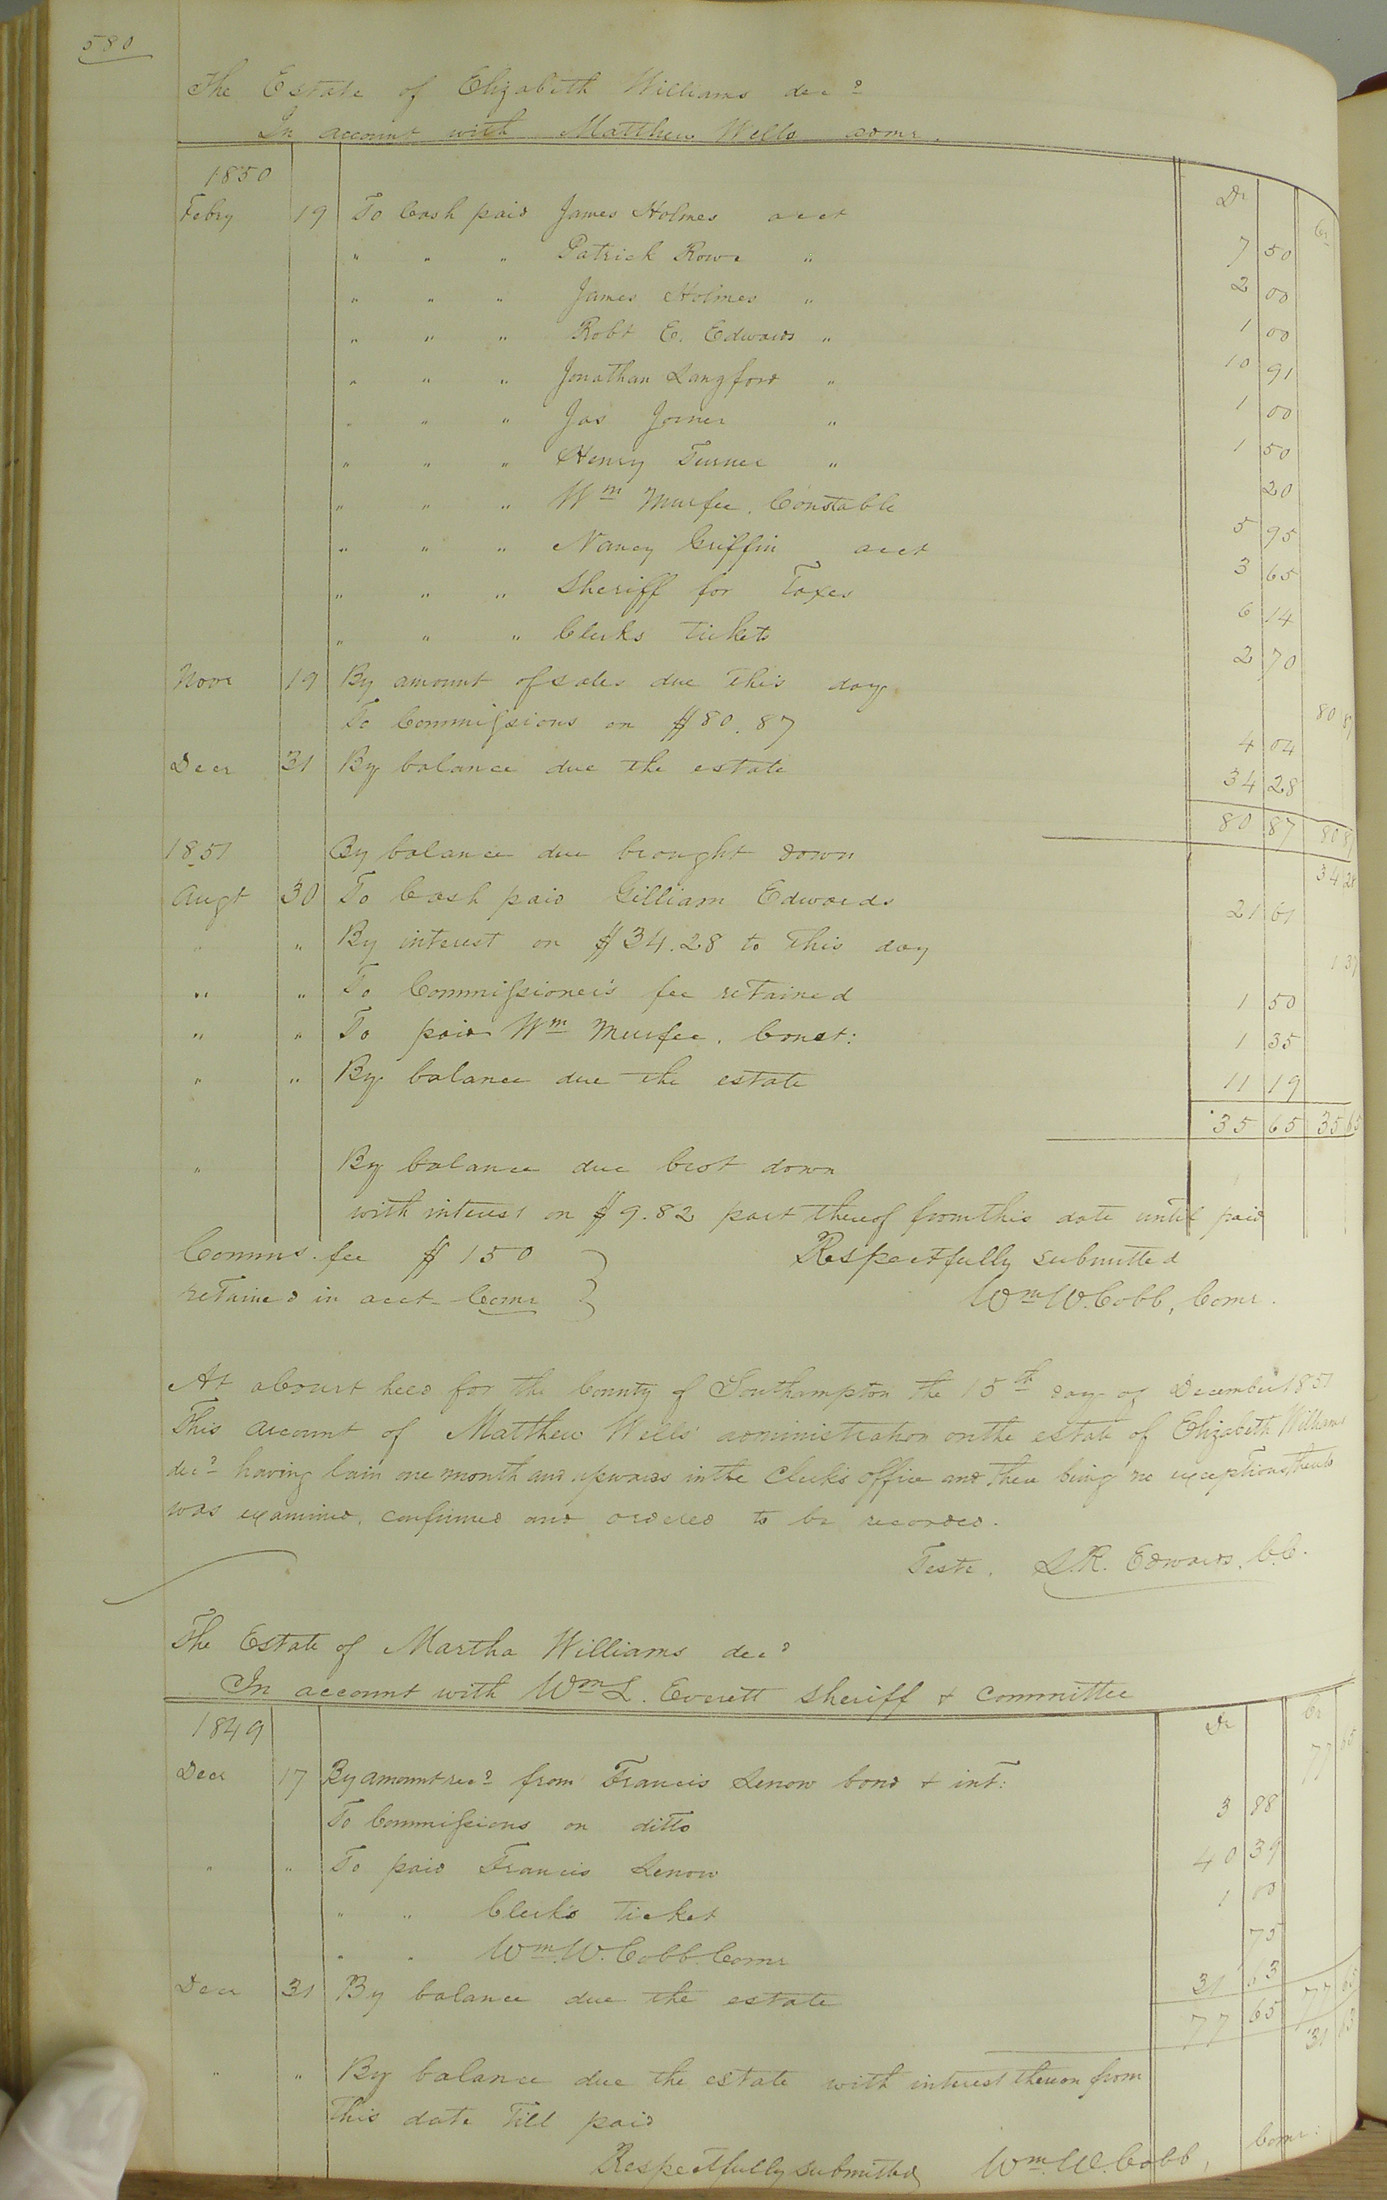 580
The Estate of Elizabeth Williams decd
In account with Matthew Wells admr.
1850 Dr Cr
Feby 19 To Cash paid James Holmes acct 7 50
" " " Patrick Rowe " 2 00
" " " James Holmes " 1 00
" " " Robt E. Edwards " 10 91
" " " Jonathan Langford " 1 00
" " " Jas Joiner " 1 50
" " " Henry Turner " 20
" " " Wm Murfee, Constable 5 95
" " " Nancy Griffin acct 3 65
" " " Sheriff for Taxes 6 14
" " " Clerks tickets 2 70
Novr 19 By amount of sales due this day 80 87
To Commissions on $80.87 4 04
Decr 31 By balance due the estate 34 28
80 87 80 87
1851 By balance due brought down 34 28
Augt 30 To Cash paid Gilliam Edwards 21 61
" " By interest on $34.28 to this day 1 37
" " To Commissioner's fee retained 1 50
" " To paid Wm Murfee, Const: 1 35
" " By balance due the estate 11 19
35 65 35 65
" By balance due brot down
with interest on $9.82 part thereof from this date until paid
Comms. fee $150 Respectfully submitted
retained in acct Comr Wm W. Cobb, Comr.
At a Court held for the County of Southampton the 15th day of December 1851
This account of Matthew Wells' administration on the estate of Elizabeth Williams
decd having lain one month and upwards in the Clerk's office and there being no exceptions thereto
was examined, confirmed and ordered to be recorded.
Teste, L.R. Edwards, C.C.
The Estate of Martha Williams decd
In account with Wm L. Everett Sheriff & Committee
1849 Dr Cr
Decr 17 By amount recd from Francis Lenow bond & int: 77 65
To Commissions on ditto 3 88
" " To paid Francis Lenow 40 39
" " Clerk's Ticket 1 00
" " Wm. W. Cobb. Comr 75
Decr 31 By balance due the estate 31 63
77 65 77 65
" " By balance due the estate with interest thereon from 31 63
this date till paid
Respectfully submitted Wm. W. Cobb, Comr: